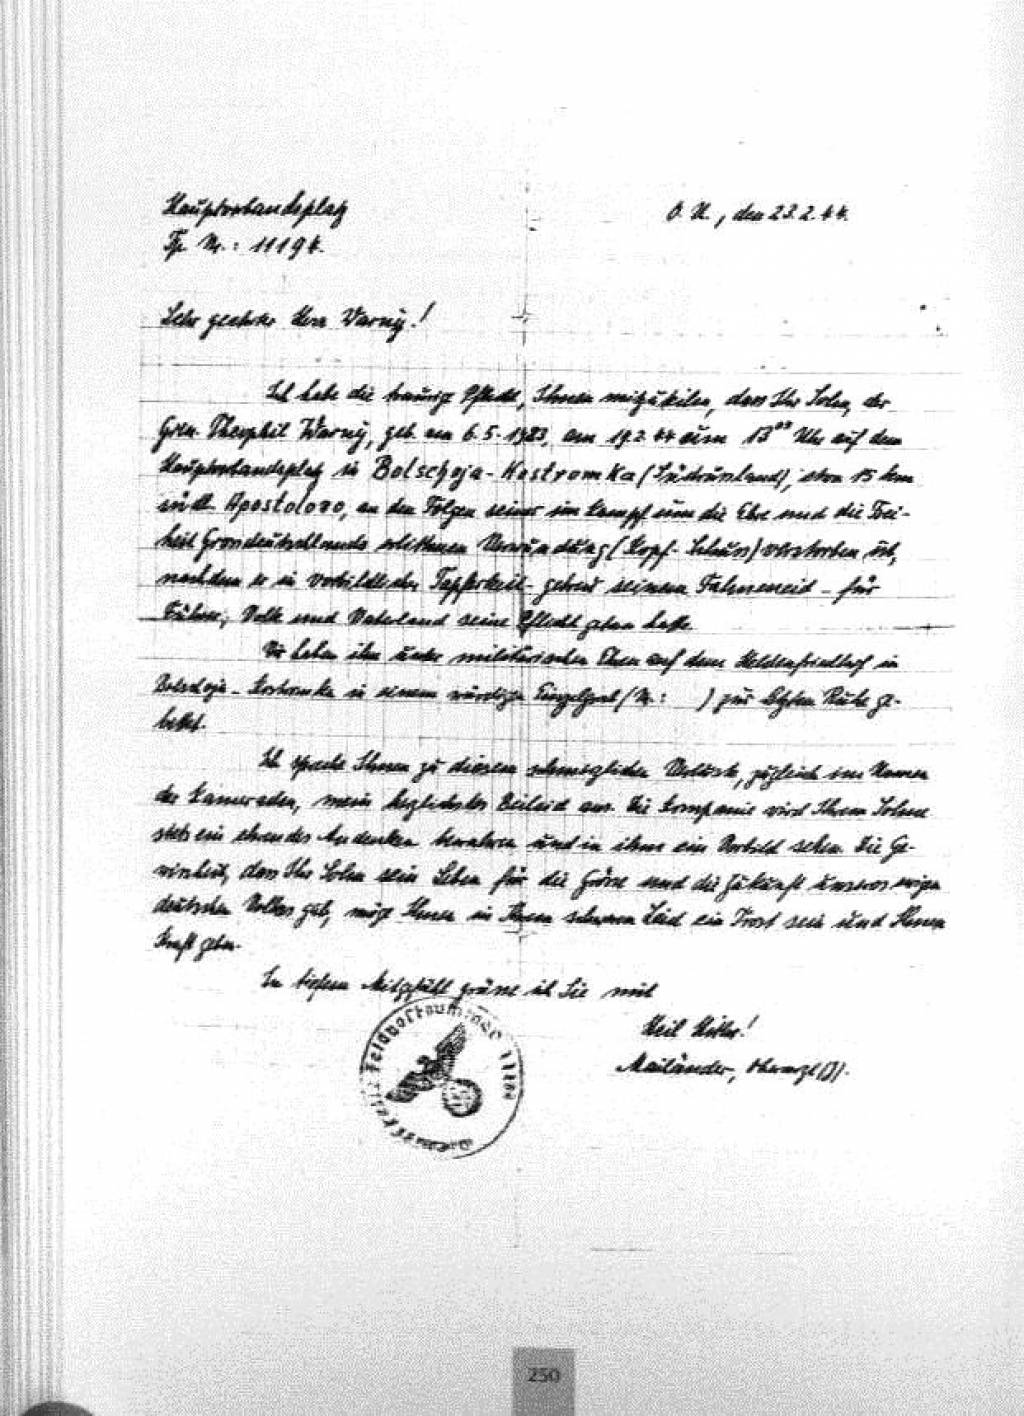 Hauptverbandsplatz
O. U., den 23.2.44.
Fp. Nr.: 11194.
Sehr geehrter Herr Warny!
Ich habe die traurige Pflicht, Ihnen mitzuteilen, dass Ihr Sohn, der
Gren. Theophil Warny, geb. am 6.5.1923, am 19.2.44 um 13 Uhr auf dem
Hauptverbandsplatz in Bolschoja-Kostromka (Südrussland), etwa 15 km
südl. Apostolowo, an den Folgen seiner im Kampf um die Ehre und die Frei-
heit Grossdeutschlands erlittenen Verwundung (Kopf-Schuss) verstorben ist,
nachdem er in vorbildlicher Tapferkeit - getreu seinem Fahneneid - für
Führer, Volk und Vaterland seine Pflicht getan hatte.
Wir haben ihn unter militärischen Ehren auf dem Heldenfriedhof in
Bolschoja-Kostromka in einem würdigen Einzelgrab (Nr.: ) zur letzten Ruhe ge-
bettet.
Ich spreche Ihnen zu diesem schmerzlichen Verluste, zugleich im Namen
der Kameraden, mein herzlichstes Beileid aus. Die Kompanie wird Ihrem Sohne
stets ein ehrendes Andenken bewahren und in ihm ein Vorbild sehen. Die Ge-
wissheit, dass Ihr Sohn sein Leben für die Grösse und die Zukunft unseres ewigen
deutschen Volkes gab, möge Ihnen in Ihrem schweren Leid ein Trost sein und Ihnen
Kraft geben.
In tiefem Mitgefühl grüsse ich Sie mit
Heil Hitler!
Mailänder, Oberarzt
Feldpostnummer
250